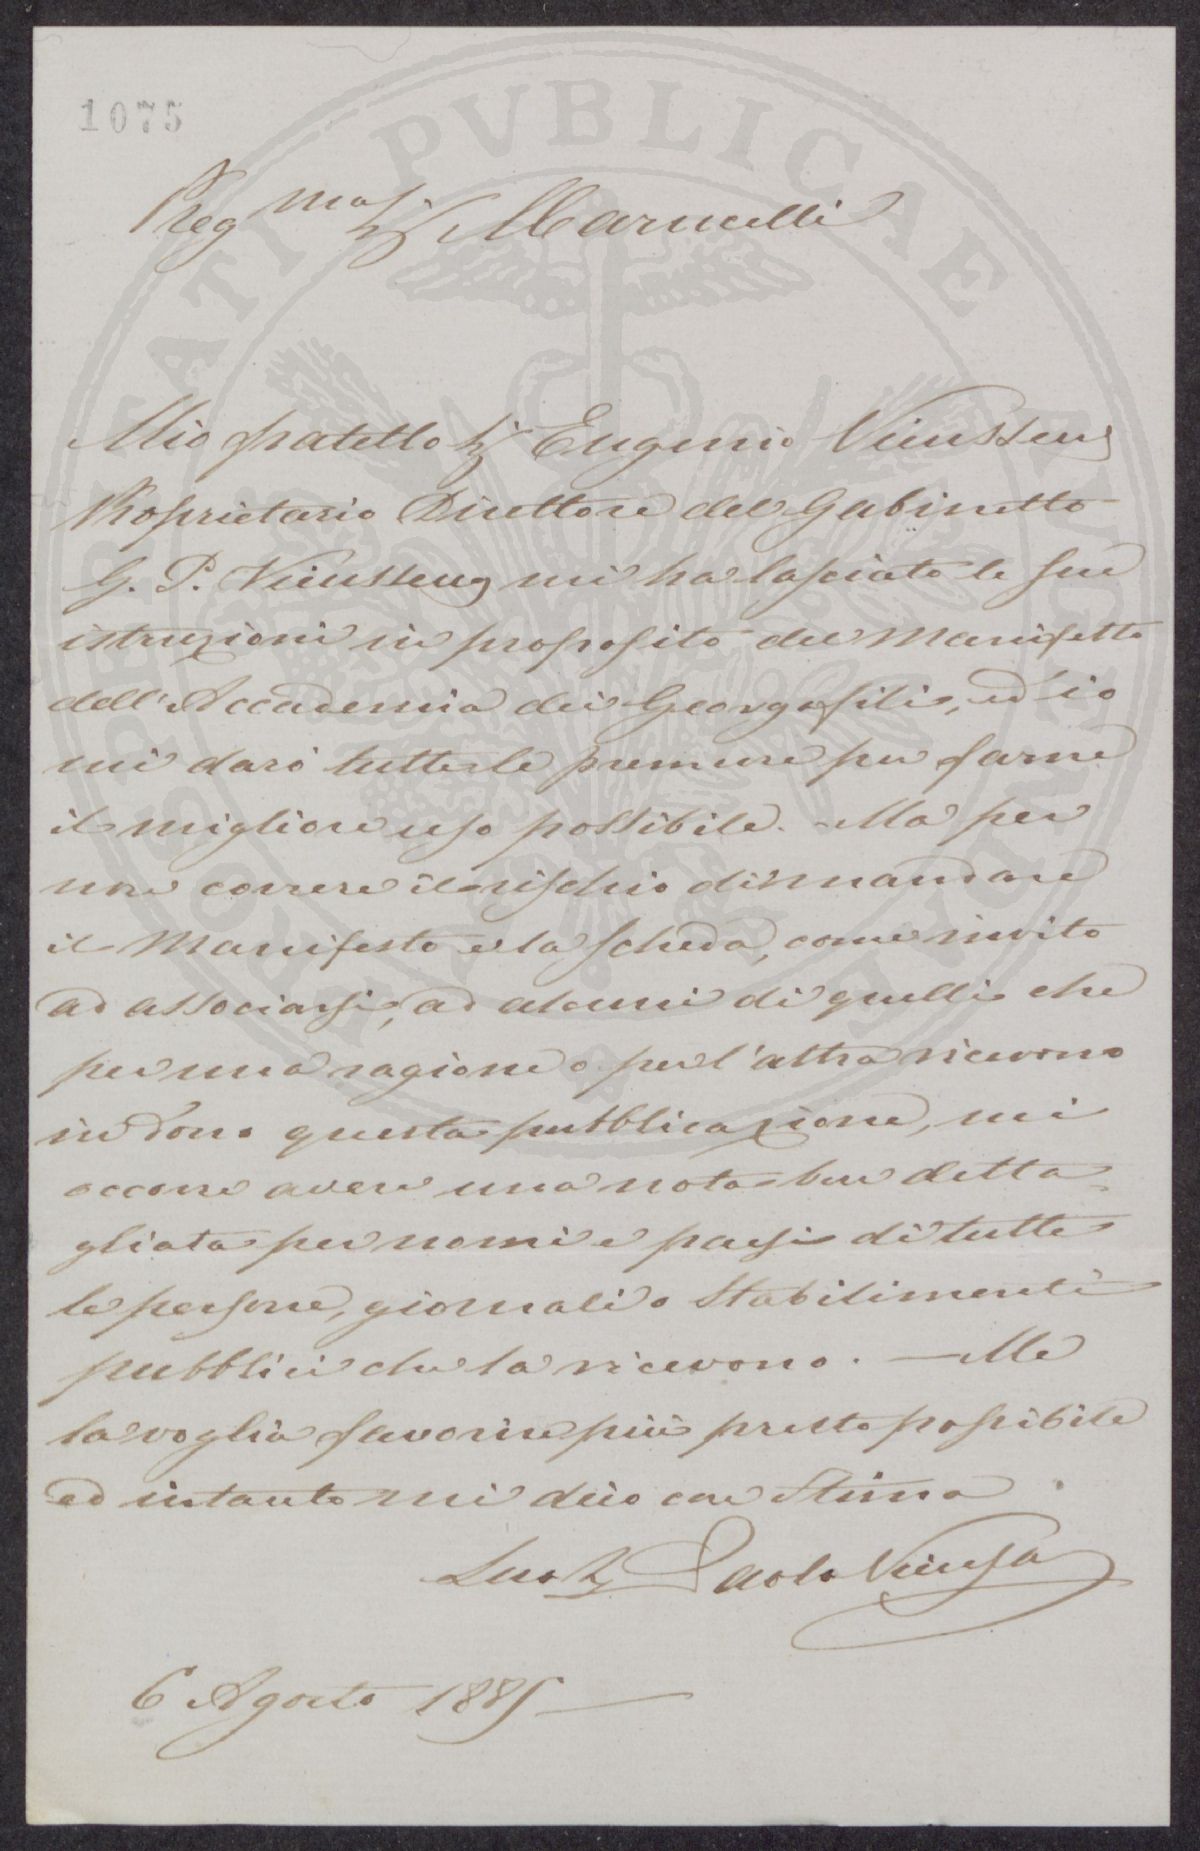 1075
Preg mo Sig Marucelli
Mio fratello Sig Eugenio Vieusseux
Proprietario Direttore del Gabinetto
G. P. Vieusseux mi ha lasciato le sue
istruzioni in proposito del Manifesto
dell'Accademia dei Georgofili, ed io
mi darò tutte le premure per farne
il migliore uso possibile. Ma per
non correre il rischio di mandare
il Manifesto e la scheda, come invito
ad associarsi, ad alcuni di quelli che
per una ragione o per l'altra ricevono
in dono questa pubblicazione, mi
occorre avere una nota ben detta
gliata per nomi e paesi di tutte
le persone, giornali o Stabilimenti
pubblici che la ricevono. — Me
la voglia favorire più presto possibile
ed intanto mi dico con Stima
Paolo
6 Agosto 1885
PROSPERITATI PVBLICAE AVGENDAE